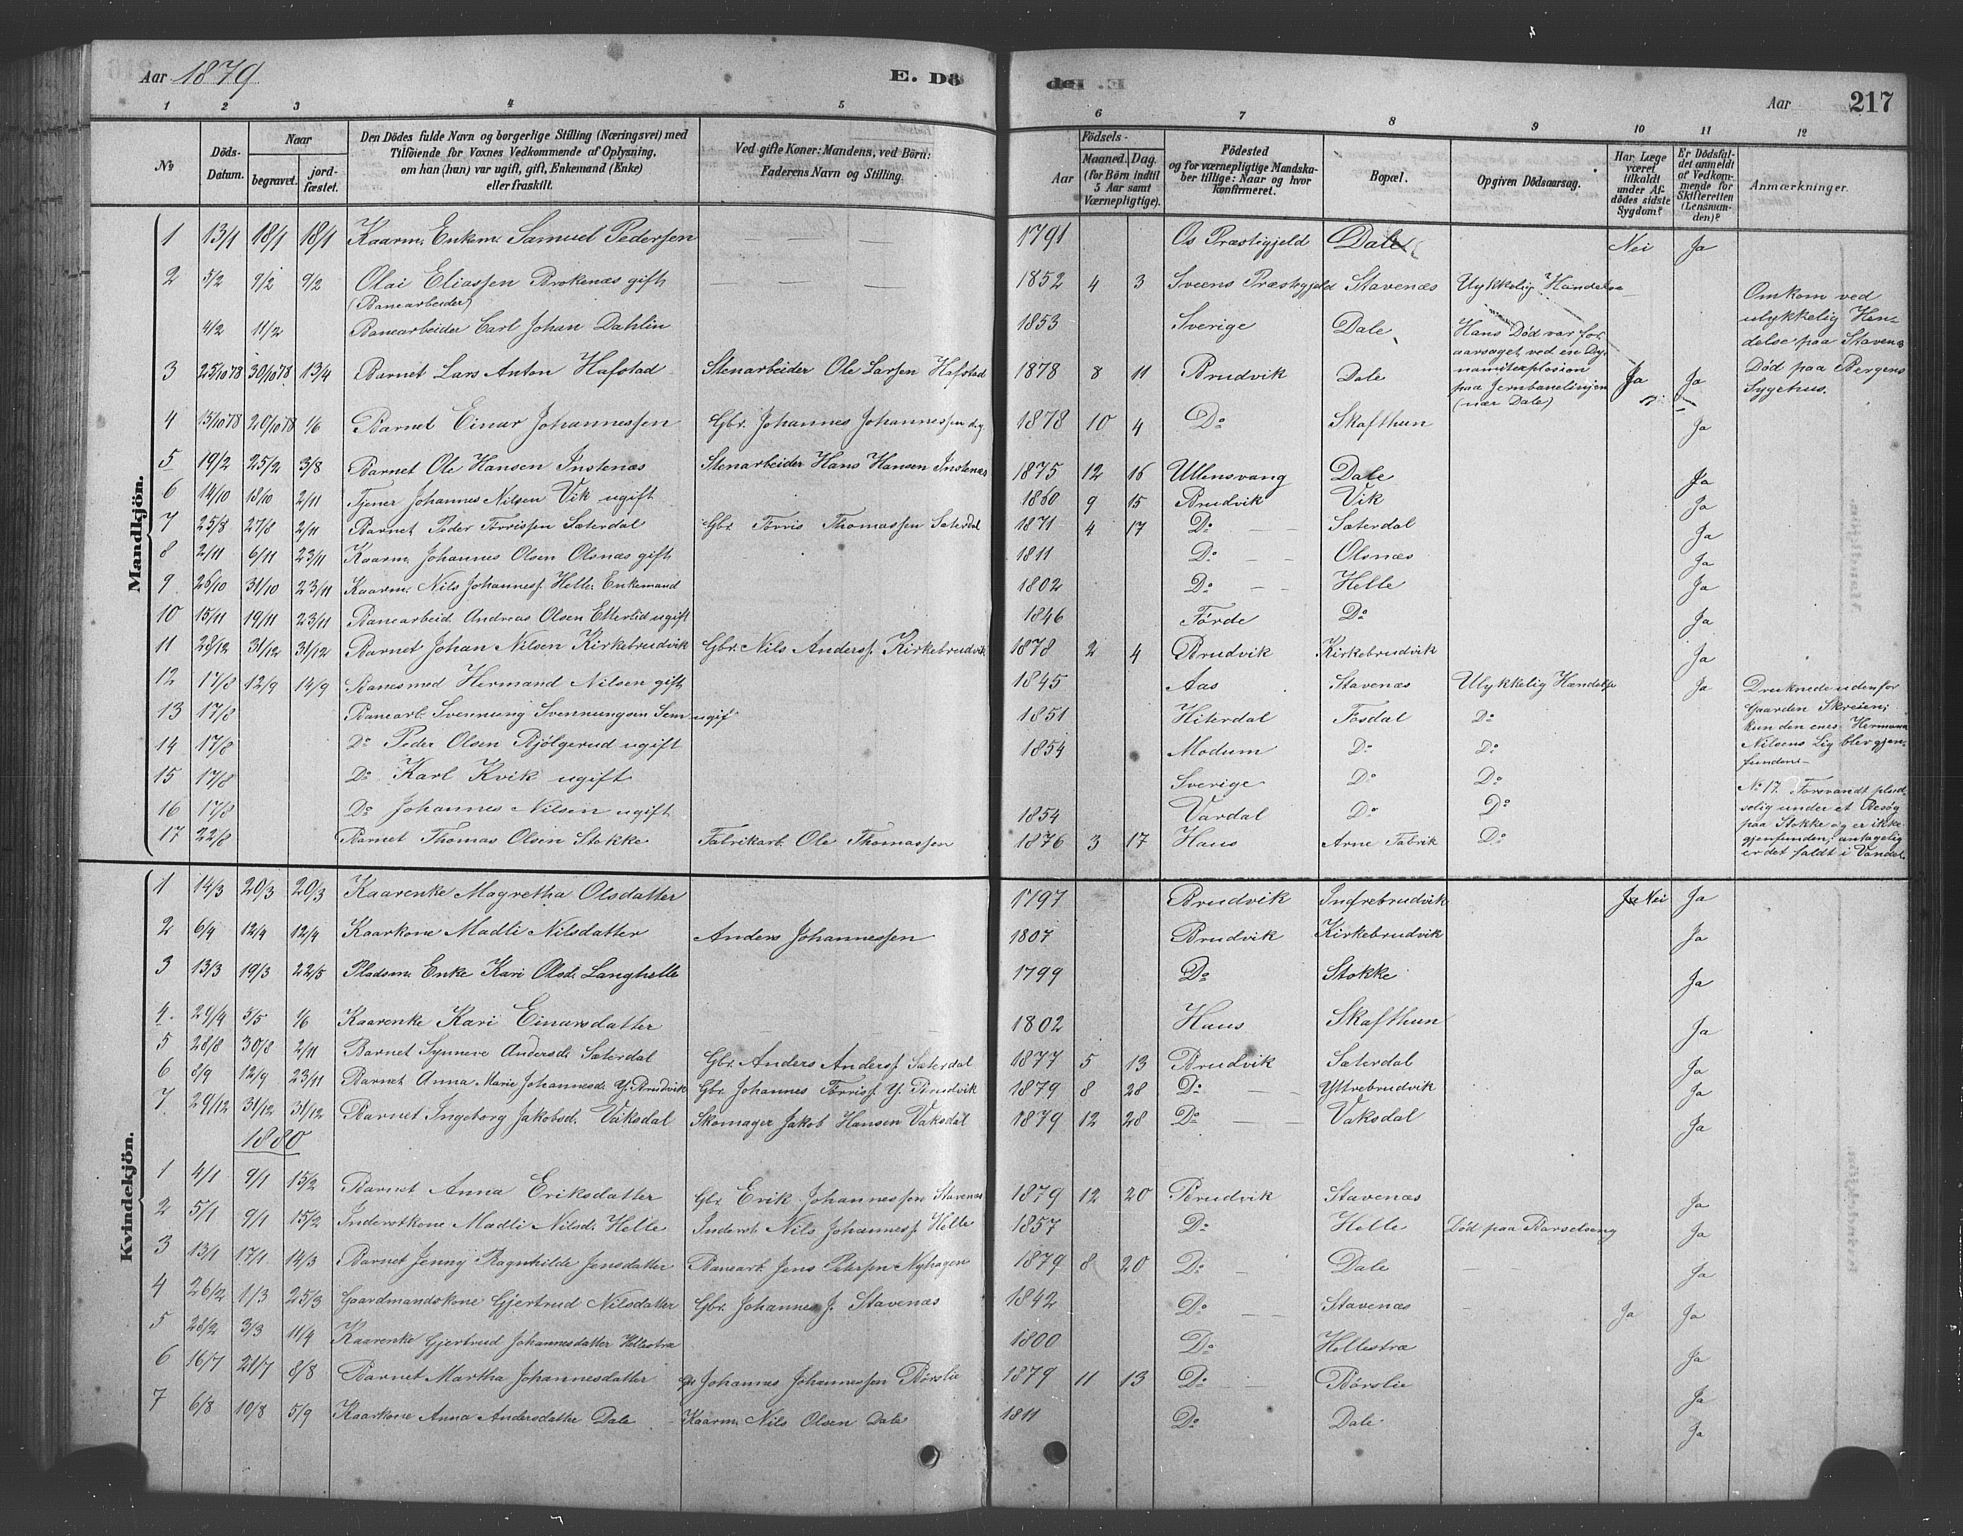 Aar 1879
E. Dö
E. Dö
Aar
217
1 2 3 4 5 6 7 8 9 10 11 12
№
Döds-Datum.
Naar
begravet.
jordfæstet.
Den Dödes fulde Navn og borgerlige Stilling (Næringsvei) med
Tilföiende for Voxnes Vedkommende af Oplysning,
om han (hun) var ugift, gift, Enkemand (Enke)
eller fraskilt.
Ved gifte Koner: Mandens, ved Börn:
Faderens Navn og Stilling.
Födsels-
Aar
Maaned. Dag.
(for Börn indtil
5 Aar samt
Værnepligtige).
Födested
og for værnepligtige Mandskaber tillige: Naar og hvor
konfirmeret.
Bopæl.
Opgiven Dödsaarsag.
Har Læge
været
tilkaldt
under Afdödes sidste
Sygdom?
Er Dödsfaldet anmeldt
af Vedkommende for
Skifteretten
(Lensmanden)?
Anmærkninger.
Mandkjön.
1 13/1 18/1 18/1 Kaarm. Enkem. Samuel Pedersen — — — 1791 Os Præstigjeld Dale Nei Ja
2 5/2 9/2 9/2 Olai Eliassen Brokenæs gift — — — 1852 4 3 Sveens Præstegjeld Stavenæs Ulykkelig Hændelse — Omkom ved
(Banearbeider) ulykkelig Hendelse paa Stavenæs
4/2 11/2 Banearbeider Carl Johan Dahlin 1853 Sverige Dale Hans Död var foraarsaget ved en Dynamitexplosion
paa Jernbanelinjen
(nær Dale) Ja Ja Död paa Bergens
Sygehus.
3 25/10 78 30/10 78 13/4 Barnet Lars Anton Hafstad Stenarbeider Ole Larsen Hafstad 1878 8 11 Brudvik Dale
4 15/10 78 20/10 78 1/6 Barnet Einar Johannessen Gbr. Johannes Johannessen 1878 10 4 Do Skafthun Ja
5 19/2 25/2 3/8 Barnet Ole Hansen Instenæs Stenarbeider Hans Hansen Instenæs 1875 12 16 Ullensvang Dale Ja
6 14/10 18/10 2/11 Tjener Johannes Nilsen Vik ugift 1860 9 15 Brudvik Vik Ja
7 25/8 27/8 2/11 Barnet Peder Torrissen Sæterdal Gbr. Torris Thomassen Sæterdal 1871 4 17 Do — Sæterdal Ja
8 2/11 6/11 23/11 Kaarm. Johannes Olsen Olsnæs gift 1811 Do — Olsnæs Ja
9 26/10 31/10 23/11 Kaarm. Nils Johannesf. Helle. Enkemand 1802 Do — Helle Ja
10 15/11 19/11 23/11 Banearbeid Andreas Olsen Etterlid ugift 1846 Förde Do Ja
11 28/12 31/12 31/12 Barnet Johan Nilsen Kirkebrudvik Gbr. Nils Anderss. Kirkebrudvik 1878 2 4 Brudvik Kirkebrudvik Ja
12 17/8 12/9 14/9 Banesmed Hermand Nilsen gift 1845 Aas Stavenæs Ulykkelig Hændelse Ja Druknede udenfor
Gaarden Skreien;
kun den enes Hermann
Nilsens Lig blev gjenfunden—
13 17/8 Banearb. Svennung Svennungsen Sem ugif 1851 Hiterdal Fosdal Do
14 17/8 Do Peder Olsen Bjölgerud ugift 1854 Modum Do Do
15 17/8 Do Karl Kvik ugift Sverige Do Do
16 17/8 Do Johannes Nilsen ugift 1854 Vardal Do Do
17 22/8 Barnet Thomas Olsen Stokke Fabrikarb. Ole Thomassen 1876 3 17 Haus Arne Fabrik Do
No 17. Forsvandt pludselig under et Besög
paa Stokke og er ikke
gjenfunden, antagelig
er det faldt i Vandet.
Kvindekjön.
1 14/3 20/3 20/3 Kaarenke Magretha Olsdatter 1797 Brudvik Indrebrudvik Nei Ja
2 6/4 12/4 12/4 Kaarkone Madli Nilsdatter Anders Johannessen 1807 Brudvik Kirkebrudvik Ja
3 13/3 19/3 22/5 Pladsm. Enke Kari Olsd. Langhelle 1799 Do Stokke Ja
4. 29/4 5/5 1/6 Kaarenke Kari Einarsdatter 1802 Haus Skafthun Ja
5 28/8 30/8 2/11 Barnet Synneve Andersd. Sæterdal Gbr. Anders Andersf. Sæterdal 1877 5 13 Brudvik Sæterdal Ja
6 8/9 12/9 23/11 Barnet Anna Marie Johannesd. Y. Brudvik Gbr. Johannes Torrisf. Y. Brudvik 1879 8 28 Do — Yttrebrudvik Ja
7. 29/12 31/12 31/12 Barnet Ingeborg Jakobsd. Vaksdal Skomager Jakob Hansen Vaksdal 1879 12 28 Do — — Vaksdal Ja
1880
1 4/1 9/1 15/2 Barnet Anna Eriksdatter Gbr. Erik Johannessen Stavenæs 1879 12 20 Brudvik Stavenæs Ja
2 5/1 9/1 15/2 Inderstkone Madli Nilsd. Helle Inderst. Nils Johannesf. Helle 1857 Do Helle Död paa Barselseng Ja
3 13/1 17/1 14/3 Barnet Jenny Ragnhilde Jensdatter Banearb. Jens Petersen Nyhagen 1879 8 20 Do — Dale Ja
4 26/2 1/3 25/3 Gaardmandskone Gjertrud Nilsdatter Gbr. Johannes J. Stavenæs 1842 Do — Stavenæs Ja Ja
5 28/2 3/3 11/4 Kaarenke Gjertrud Johannesdatter Hellestræ 1800 Do Hellestræ Ja
6 16/7 21/7 8/8 Barnet Martha Johannesdatter Johannes Johannessen Börslie 1879 11 13 Do — Börslie Ja
7 6/8 10/8 5/9 Kaarkone Anna Andersdatter Dale Kaarm. Nils Olsen Dale 1811 Do Dale Ja